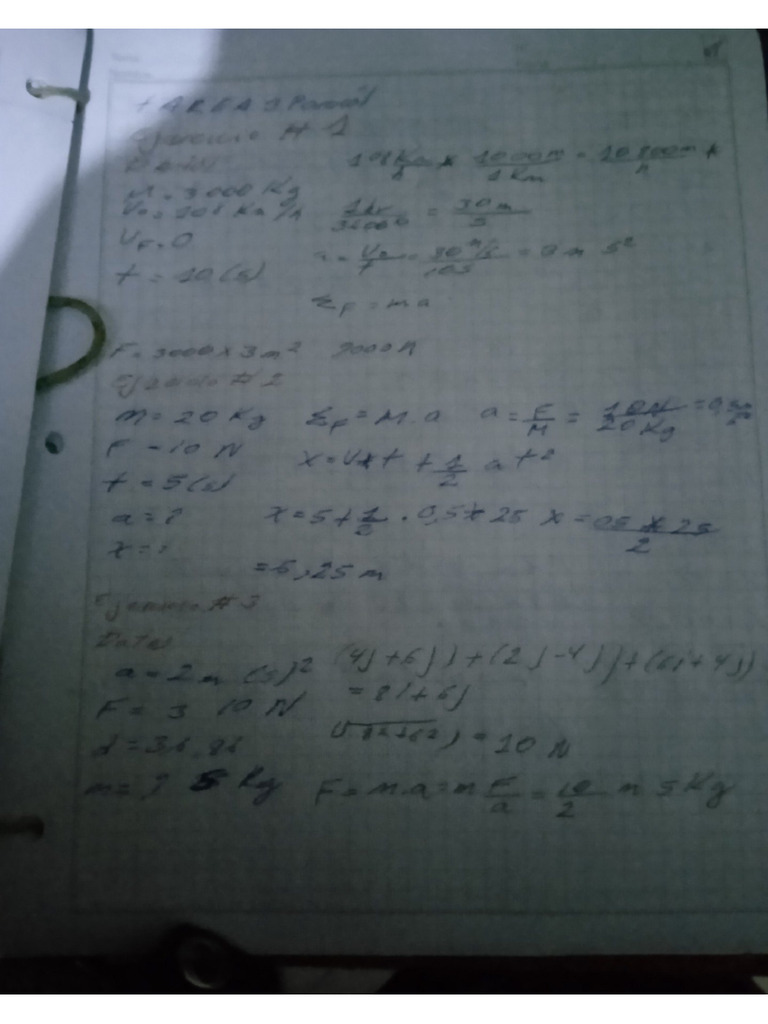 TAREA 3 Parcial
Ejercicio # 1
Datos
M = 3000 Kg
108 Km/h x 1000m/1Km = 10800m/h x
Vo = 108 Km/h
1hr/3600 = 30m/s
VF = 0
a = Vo/t = 30 m/s/10s = m s²
t = 10 (s)
ΣF = ma
F = 3000 x 3 m² 9000 N
Ejercicio # 2
m = 20 Kg ΣF = M. a a = F/M = 10N/20Kg =
F = 10 N
X = V x t + 1/2 a t²
t = 5 (s)
a = ?
X = 5 + 1/2 . 0,5 x 25 X = 05 x 25/2
X = ?
= 6,25 m
Ejercicio # 3
Datos
a = 2 m (s)² (4j + 6j) + (2j - 4j) + (6i + 4j)
F = 3 10 N
= 8i + 6j
= 10 N
m = ? 5 Kg F = m.a = m F/a = 10/2 m 5 Kg